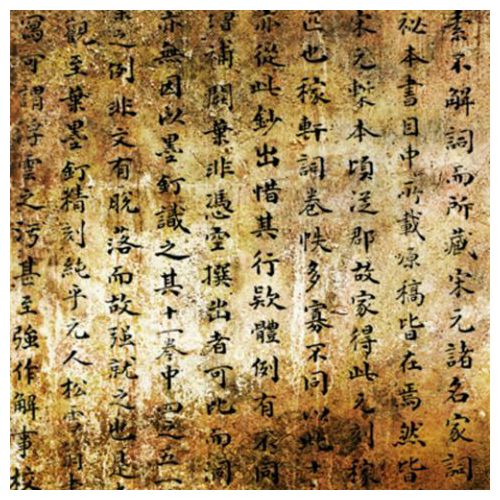 素不解詞而所藏宋元諸名家詞
祕本書目中所載源稿皆在焉然皆
宋元槧本頃從郡故家得此元刻稼
匹也稼軒詞卷帙多寡不同以此十
亦從此鈔出惜其行欵體例有不同
增補闕葉非憑空撰出者可比而
亦無因以墨釘識之其十一卷中四之五一
葉之例非文有脫落而故強就之也是
觀至葉墨釘精刻純乎元人松雪
寫可謂浮雲之污甚至強作解事校